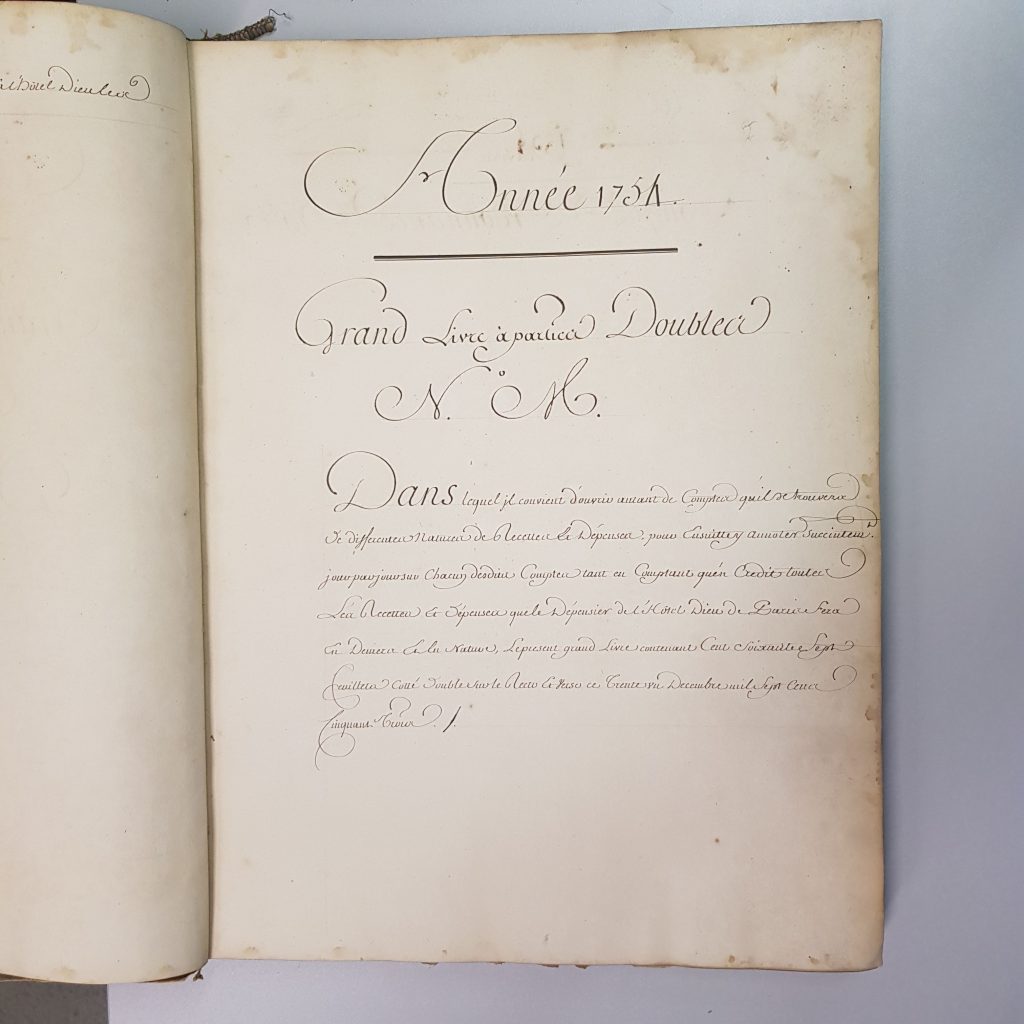 à l'hôtel Dieu les
Année 1754.
Grand Livre à parties Doubles
N.° M.
Dans lequel jl convient d'ouvrir autant de Comptes qu'il se trouvera
de differentes Natures de Recettes Et Dépenses, pour Ensuitte y annoter Succintem.t
jour par jour sur Chacun desdits Comptes tant en Comptant qu'en Credit toutes
Les Recettes Et Dépenses que le Dépensier de l'Hôtel Dieu de Paris fera
En Deniers Et En Nature, Le present grand Livre contenant Cent Soixante Sept
feuillets Cotté Double sur le Recto Et Verso ce Trente un Decembre mil Sept Cens
Cinquante Trois ./.